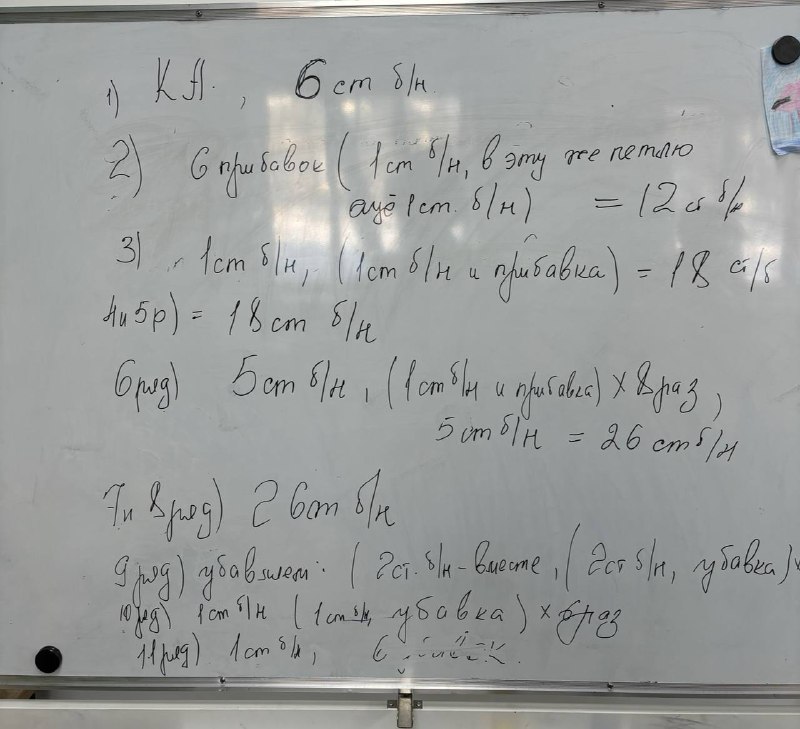 1) КА. , 6 ст б/н.
2) 6 прибавок ( 1 ст б/н, в эту же петлю
ещё 1 ст. б/н) = 12 ст б/н
3) 1 ст б/н, (1 ст б/н и прибавка) = 18 ст/б
4 и 5р) = 18 ст б/н
6 ряд) 5 ст б/н, (1 ст б/н и прибавка) × 8 раз,
5 ст б/н = 26 ст б/н
7 и 8 ряд) 26 ст б/н
9 ряд) убавляем: ( 2 ст. б/н - вместе, ( 2 ст б/н, убавка) ×
10 ряд) 1 ст б/н (1 ст б/н, убавка) × 6 раз
11 ряд) 1 ст б/н, 6